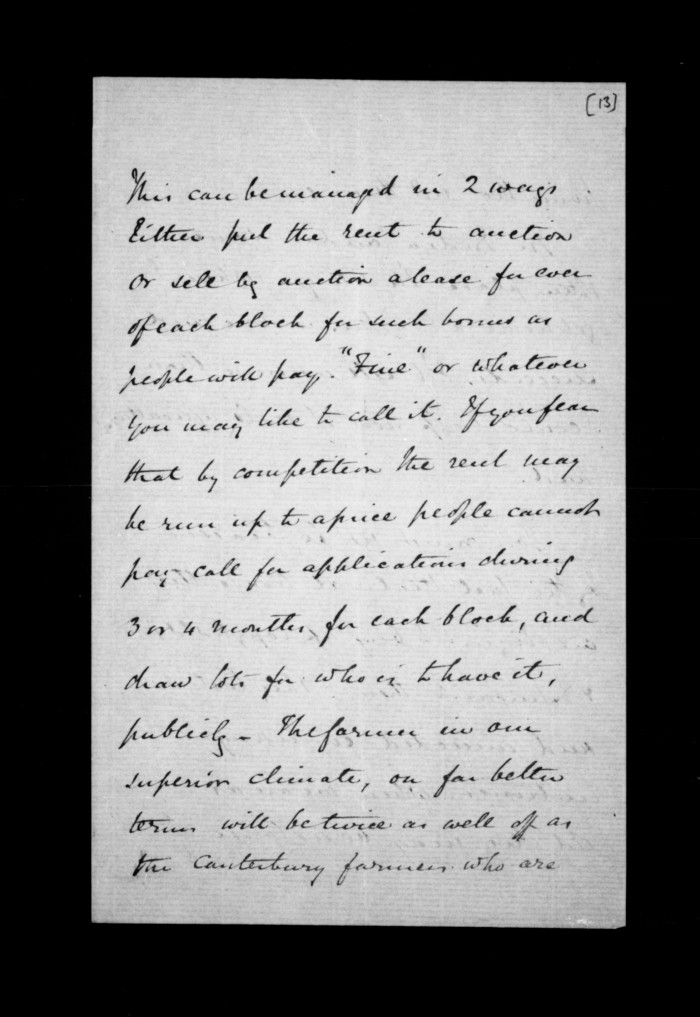 [13]
This can be managed in 2 ways
Either put the rent to auction
or sell by auction a lease for ever
of each block for such bonus as
people will pay. "Fine" or whatever
you may like to call it. If you fear
that by competition the rent may
be run up to a price people cannot
pay call for applications during
3 or 4 months for each block, and
draw lots for who is to have it,
publicly - The farmer in our
superior climate, on far better
terms will be twice as well off as
the Canterbury farmers who are